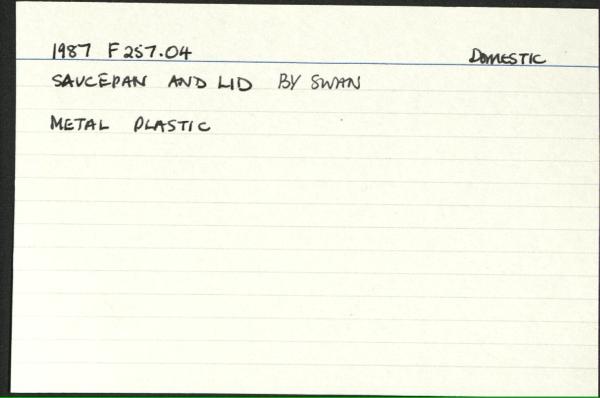 1987 F257.04 DOMESTIC
SAUCEPAN AND LID BY SWAN
METAL PLASTIC